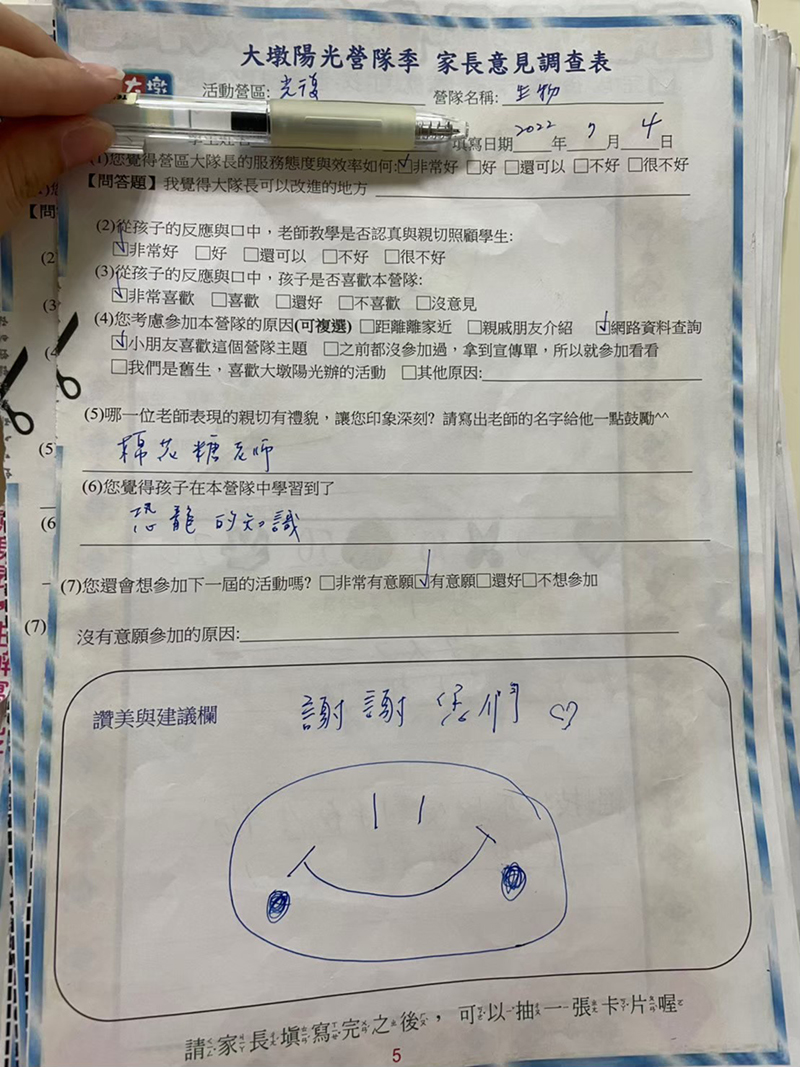 大墩陽光營隊季 家長意見調查表
大墩
活動營區: 光復 營隊名稱: 生物
填寫日期 2022 年 7 月 4 日
(1)您覺得營區大隊長的服務態度與效率如何:☑非常好 □好 □還可以 □不好 □很不好
【問答題】我覺得大隊長可以改進的地方
(2)從孩子的反應與口中，老師教學是否認真與親切照顧學生:
☑非常好 □好 □還可以 □不好 □很不好
(3)從孩子的反應與口中，孩子是否喜歡本營隊:
☑非常喜歡 □喜歡 □還好 □不喜歡 □沒意見
(4)您考慮參加本營隊的原因(可複選) □距離離家近 □親戚朋友介紹 ☑網路資料查詢
☑小朋友喜歡這個營隊主題 □之前都沒參加過，拿到宣傳單，所以就參加看看
□我們是舊生，喜歡大墩陽光辦的活動 □其他原因:
(5)哪一位老師表現的親切有禮貌，讓您印象深刻? 請寫出老師的名字給他一點鼓勵^^
棉花糖老師
(6)您覺得孩子在本營隊中學習到了
恐龍的知識
(7)您還會想參加下一屆的活動嗎? □非常有意願☑有意願□還好□不想參加
沒有意願參加的原因:
讚美與建議欄
謝謝您們 ♡
請家長填寫完之後，可以抽一張卡片喔
5